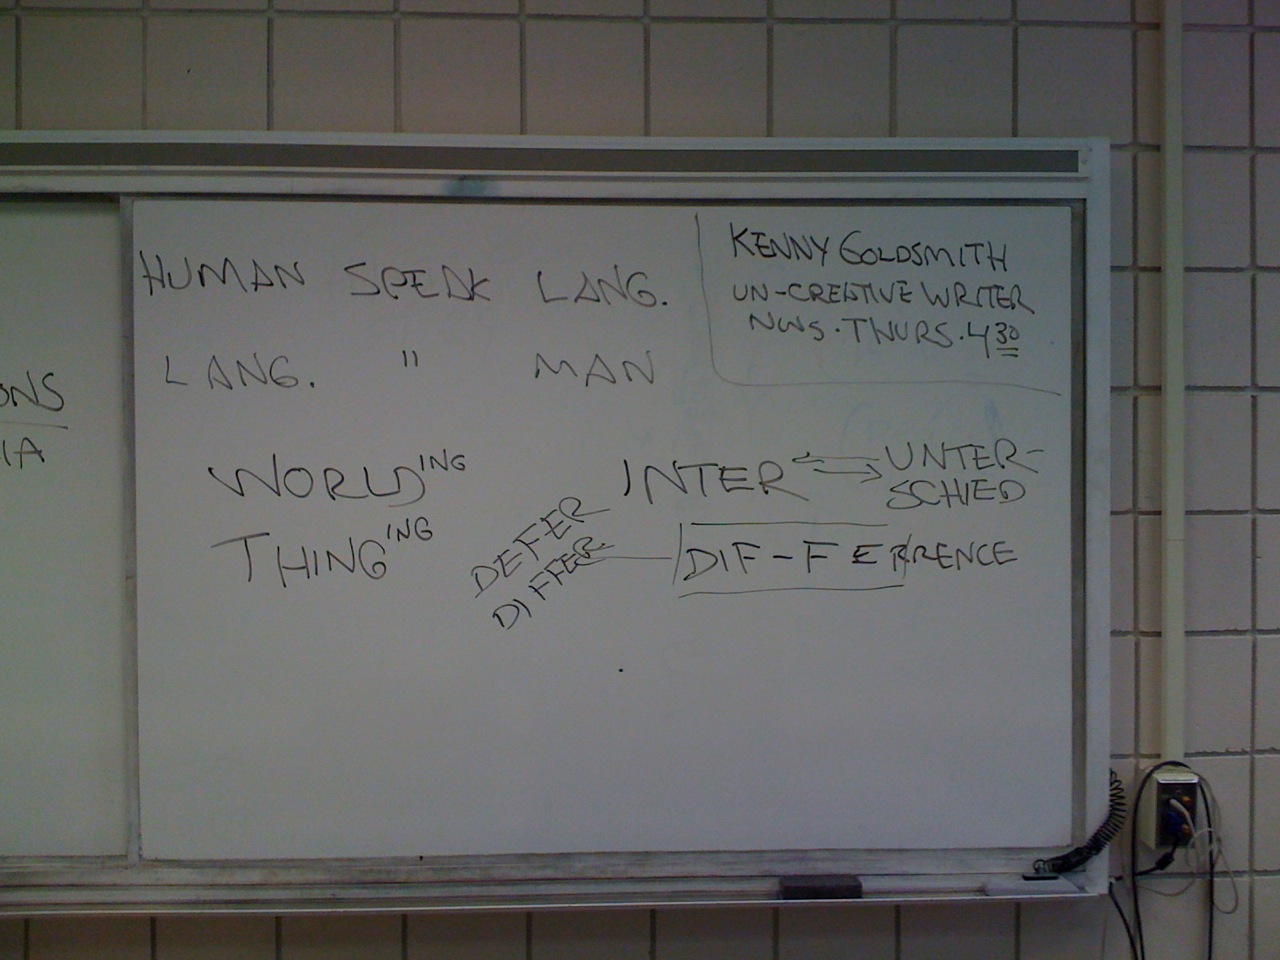 HUMAN SPEAK LANG.
LANG. " MAN
KENNY GOLDSMITH
UN-CREATIVE WRITER
NWS. THURS. 4 30
ONS
IA
WORLD ING
THING ING
INTER
UNTER-
SCHIED
DEFER
DIFFER
DIF-FERRENCE